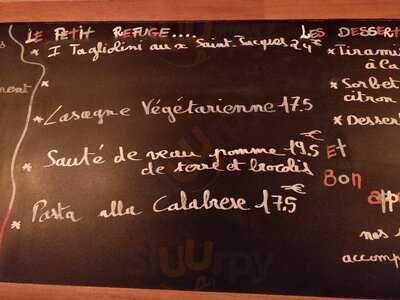 LE PETIT REFUGE.....
* I Tagliolini aux Saint-Jacques 24€
* Lasagne Végétarienne 17.5
* Sauté de veau pomme 19.5€
de terre et brocolis
* Pasta alla Calabrese 17.5€
LES DESSERT
* Tirami
à la
* Sorbet
citron
* Dessert
ET
Bon
app
nos
accomp
sluurpy